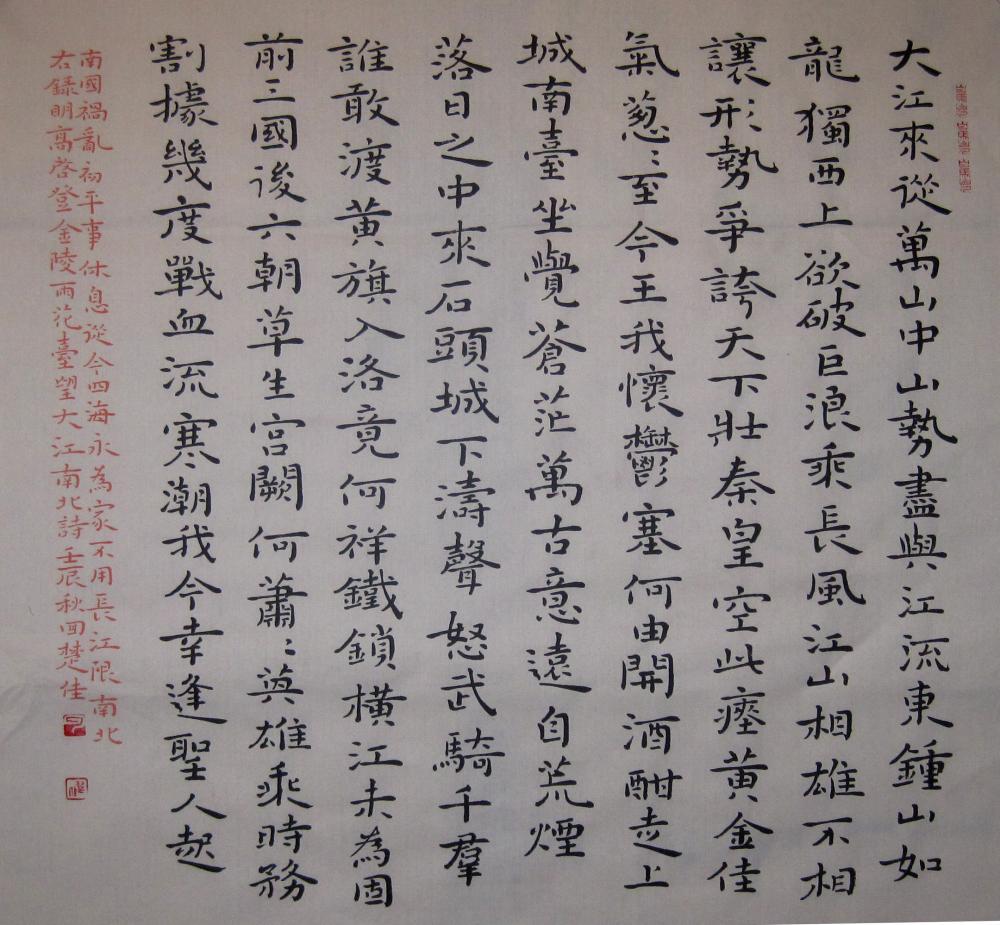 大江來從萬山中山勢盡與江流東鍾山如
龍獨西上欲破巨浪乘長風江山相雄不相
讓形勢爭誇天下壯秦皇空此瘞黃金佳
氣葱〻至今王我懷鬱塞何由開酒酣走上
城南臺坐覺蒼茫萬古意遠自荒煙
落日之中來石頭城下濤聲怒武騎千羣
誰敢渡黃旗入洛竟何祥鐵鎖橫江未為固
前三國後六朝草生宮闕何蕭〻英雄乘時務
割據幾度戰血流寒潮我今幸逢聖人起
南國禍亂初平事休息從今四海永為家不用長江限南北
右錄明高啓登金陵雨花臺望大江南北詩壬辰秋回楚佳